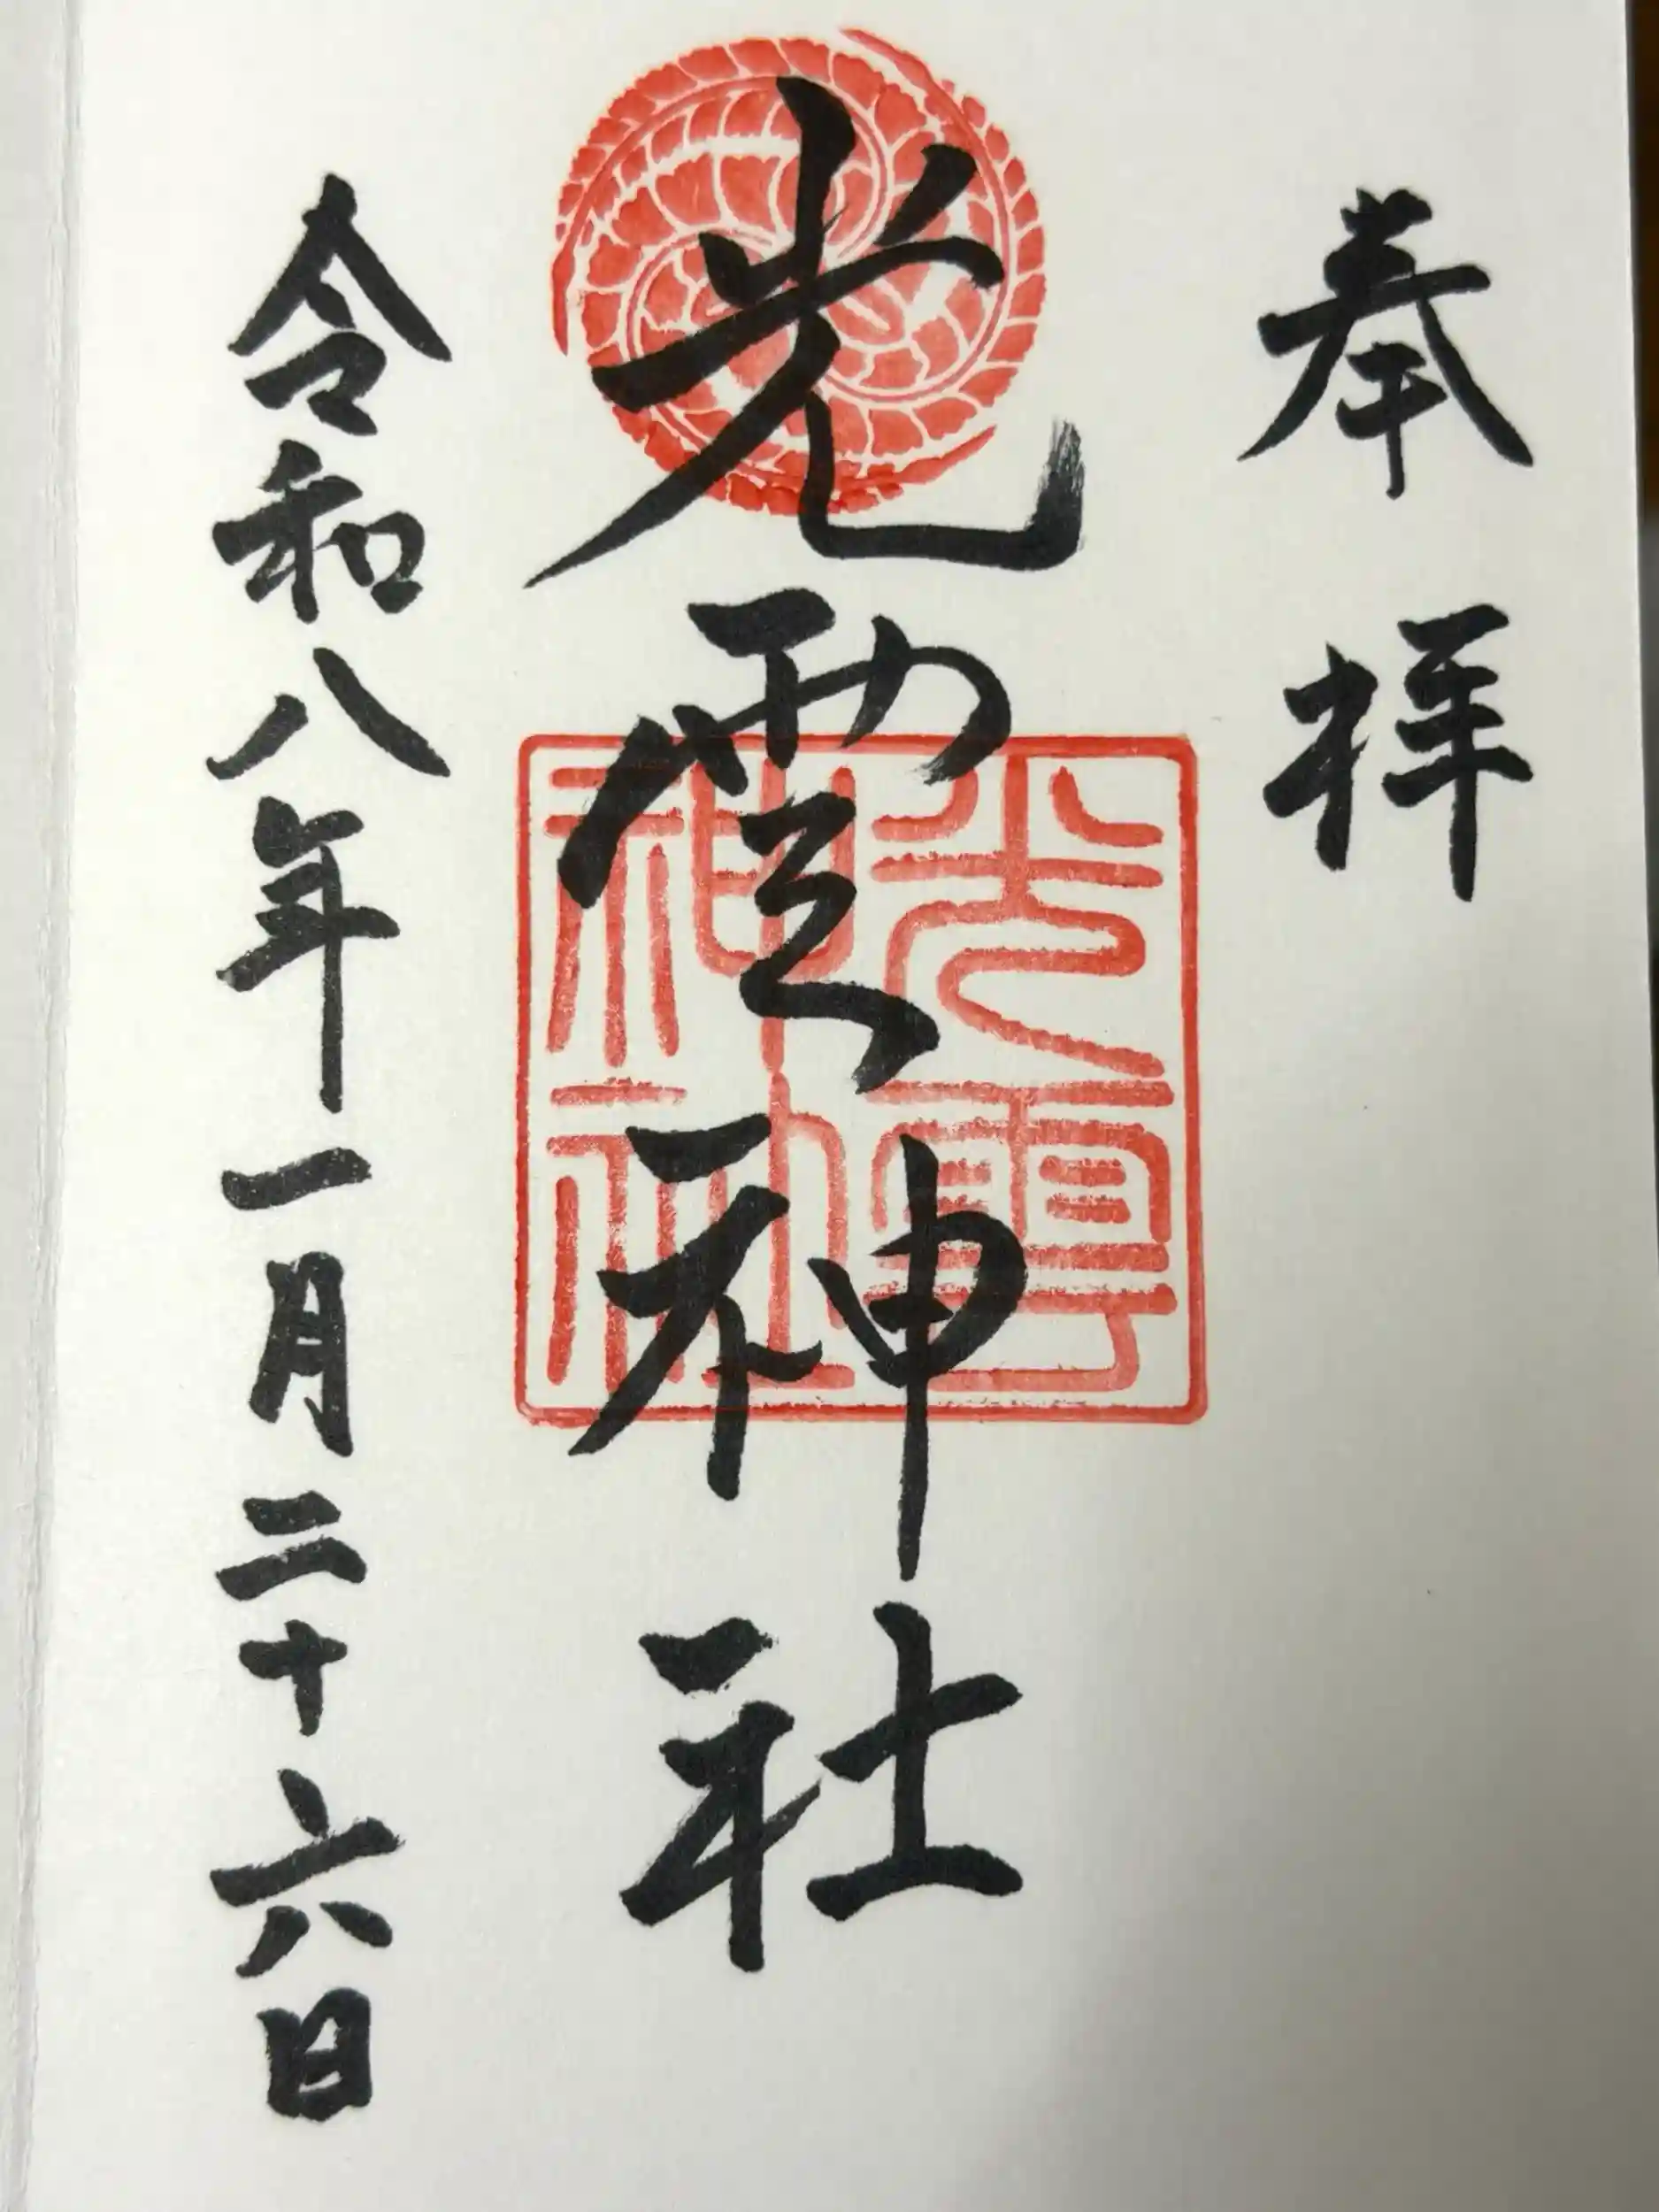 奉拝
光雲神社
光雲神社
令和八年一月二十六日